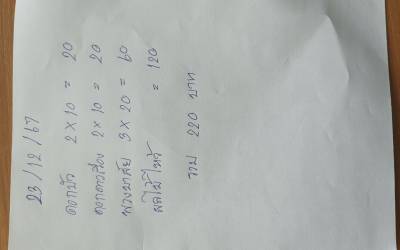 23/12/67
ดอกบัว 2 x 10 = 20
ดอกดาวเรือง 2 x 10 = 20
พวงมาลัย 3 x 20 = 60
ผลไม้ไหว้ = 120
รวม 220 บาท